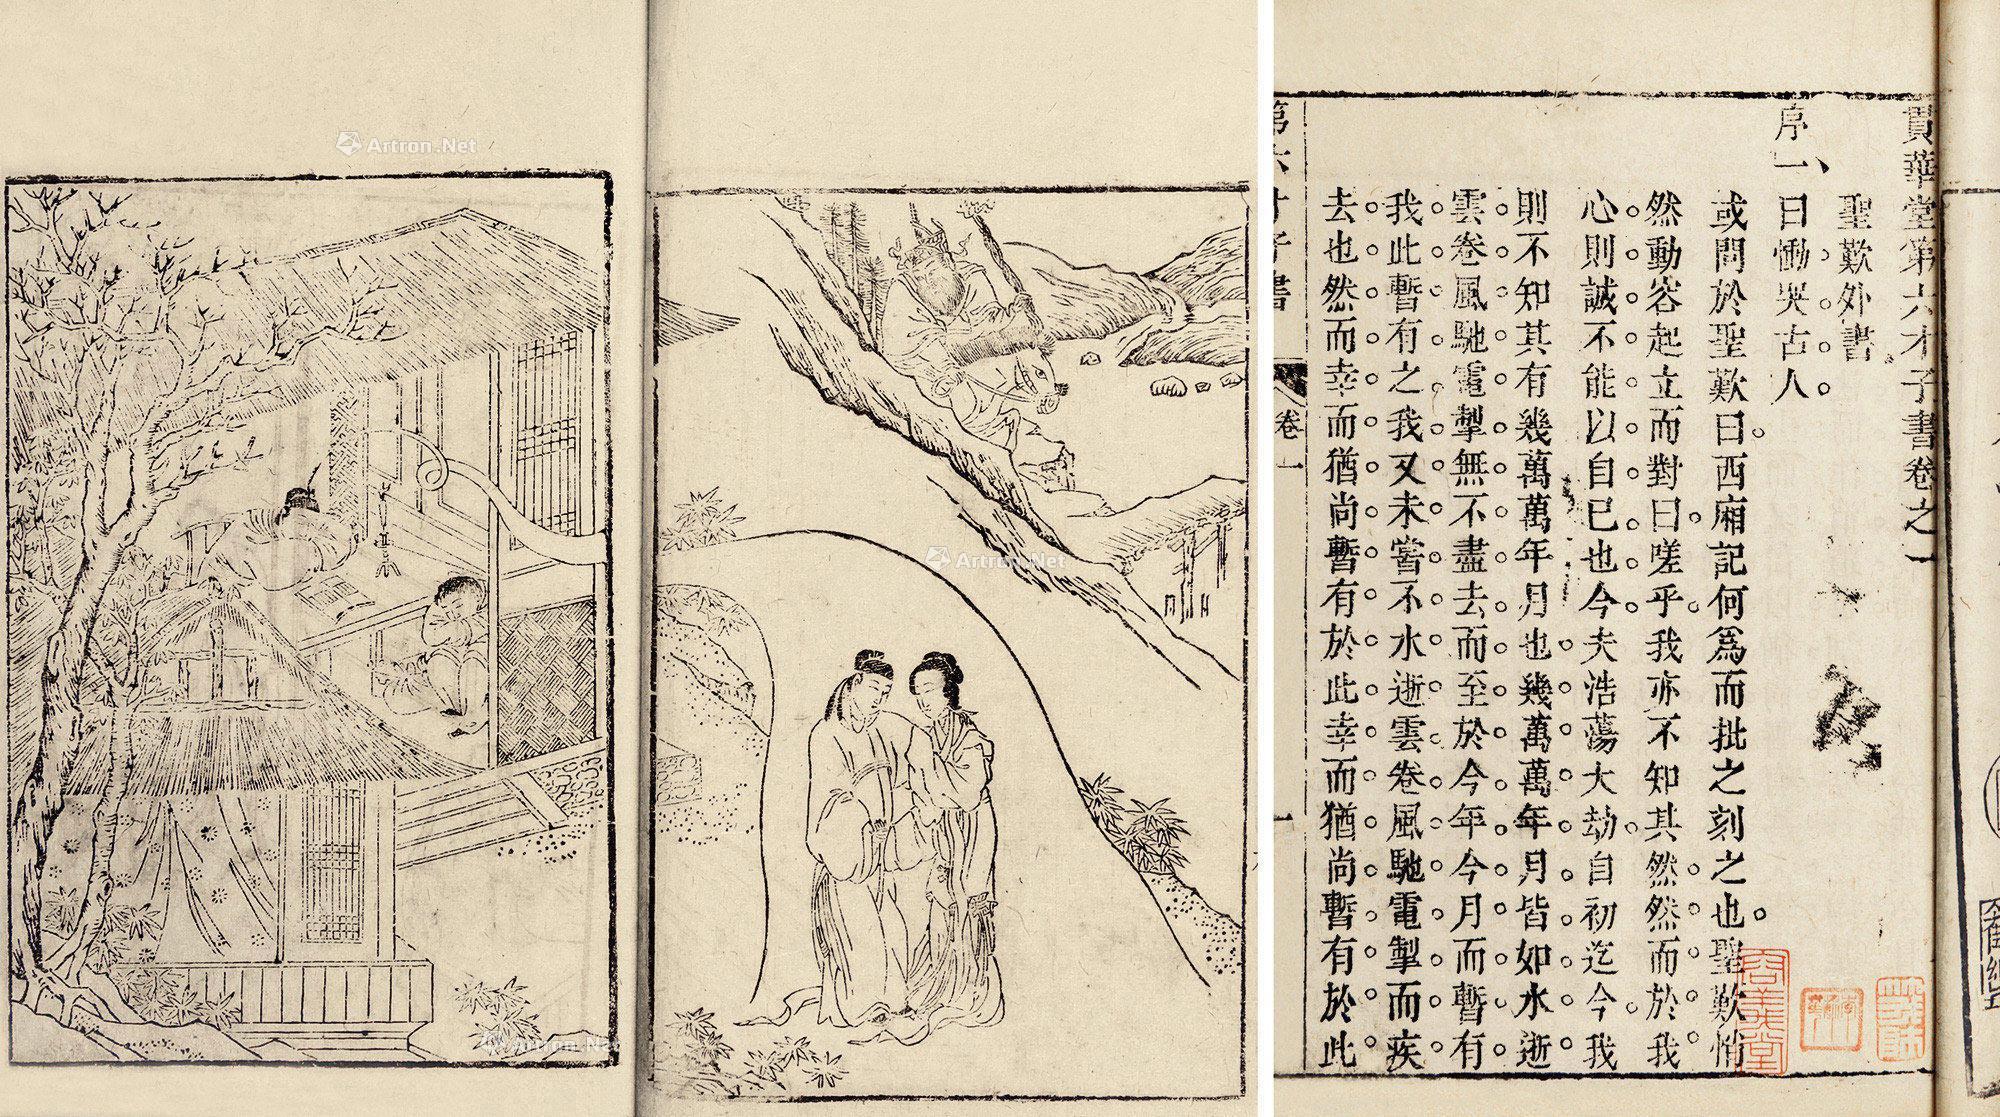 Artron.Net
Artron.Net
Artron.Net
貫華堂第六才子書卷之一
聖歎外書
序一曰慟哭古人
或問於聖歎曰西廂記何為而批之刻之也聖歎悄
然動容起立而對曰嗟乎我亦不知其然然而於我
心則誠不能以自已也今夫浩蕩大劫自初迄今我
則不知其有幾萬萬年月也幾萬萬年月皆如水逝
雲卷風馳電掣無不盡去而至於今年今月而暫有
我此暫有之我又未嘗不水逝雲卷風馳電掣而疾
去也然而幸而猶尚暫有於此幸而猶尚暫有於此
第六才子書
卷一
一